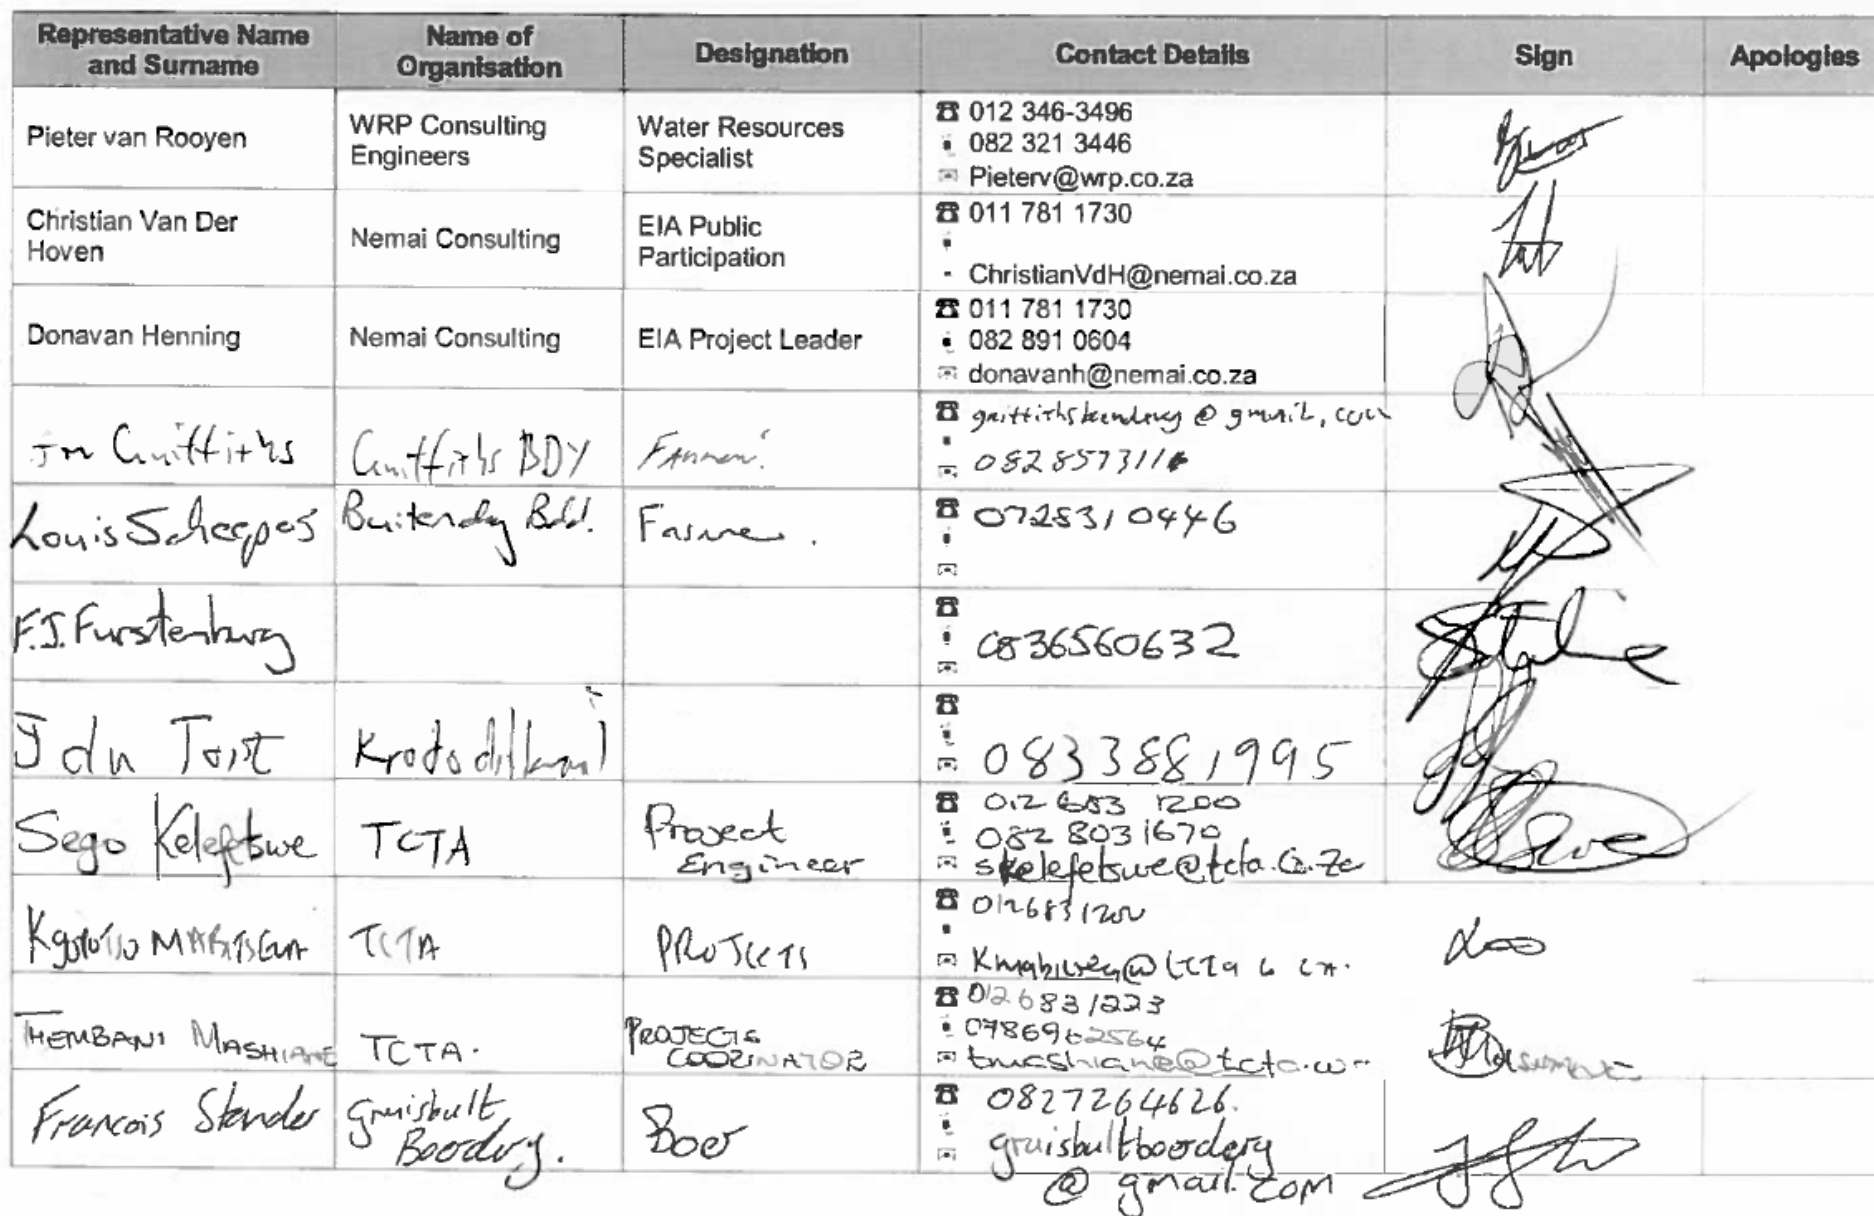 Representative Name and Surname
Name of Organisation
Designation
Contact Details
Sign
Apologies
Pieter van Rooyen
WRP Consulting
Engineers
Water Resources
Specialist
012 346-3496
082 321 3446
Pieterv@wrp.co.za
Christian Van Der
Hoven
Nemai Consulting
EIA Public
Participation
011 781 1730
ChristianVdH@nemai.co.za
Donavan Henning
Nemai Consulting
EIA Project Leader
011 781 1730
082 891 0604
donavanh@nemai.co.za
Griffiths
Griffiths BDY
@ gmail.com
Louis Scheepers
Bdd.
Farmer.
0728310446
F.J. Furstenburg
0836560632
J du Toit
0833881995
Sego Kelefetswe
TCTA
Project
Engineer
012 683 1200
082 803 1670
skelefetswe@tcta.co.za
TCTA
PROJECTS
0126831200
THEMBANI MASHIANE
TCTA.
PROJECTS
COORINATOR
0126831223
0786962564
Francois Stander
Gruisbult
Boerdery.
Boer
0827264626.
gruisbultboerdery
@ gmail.com